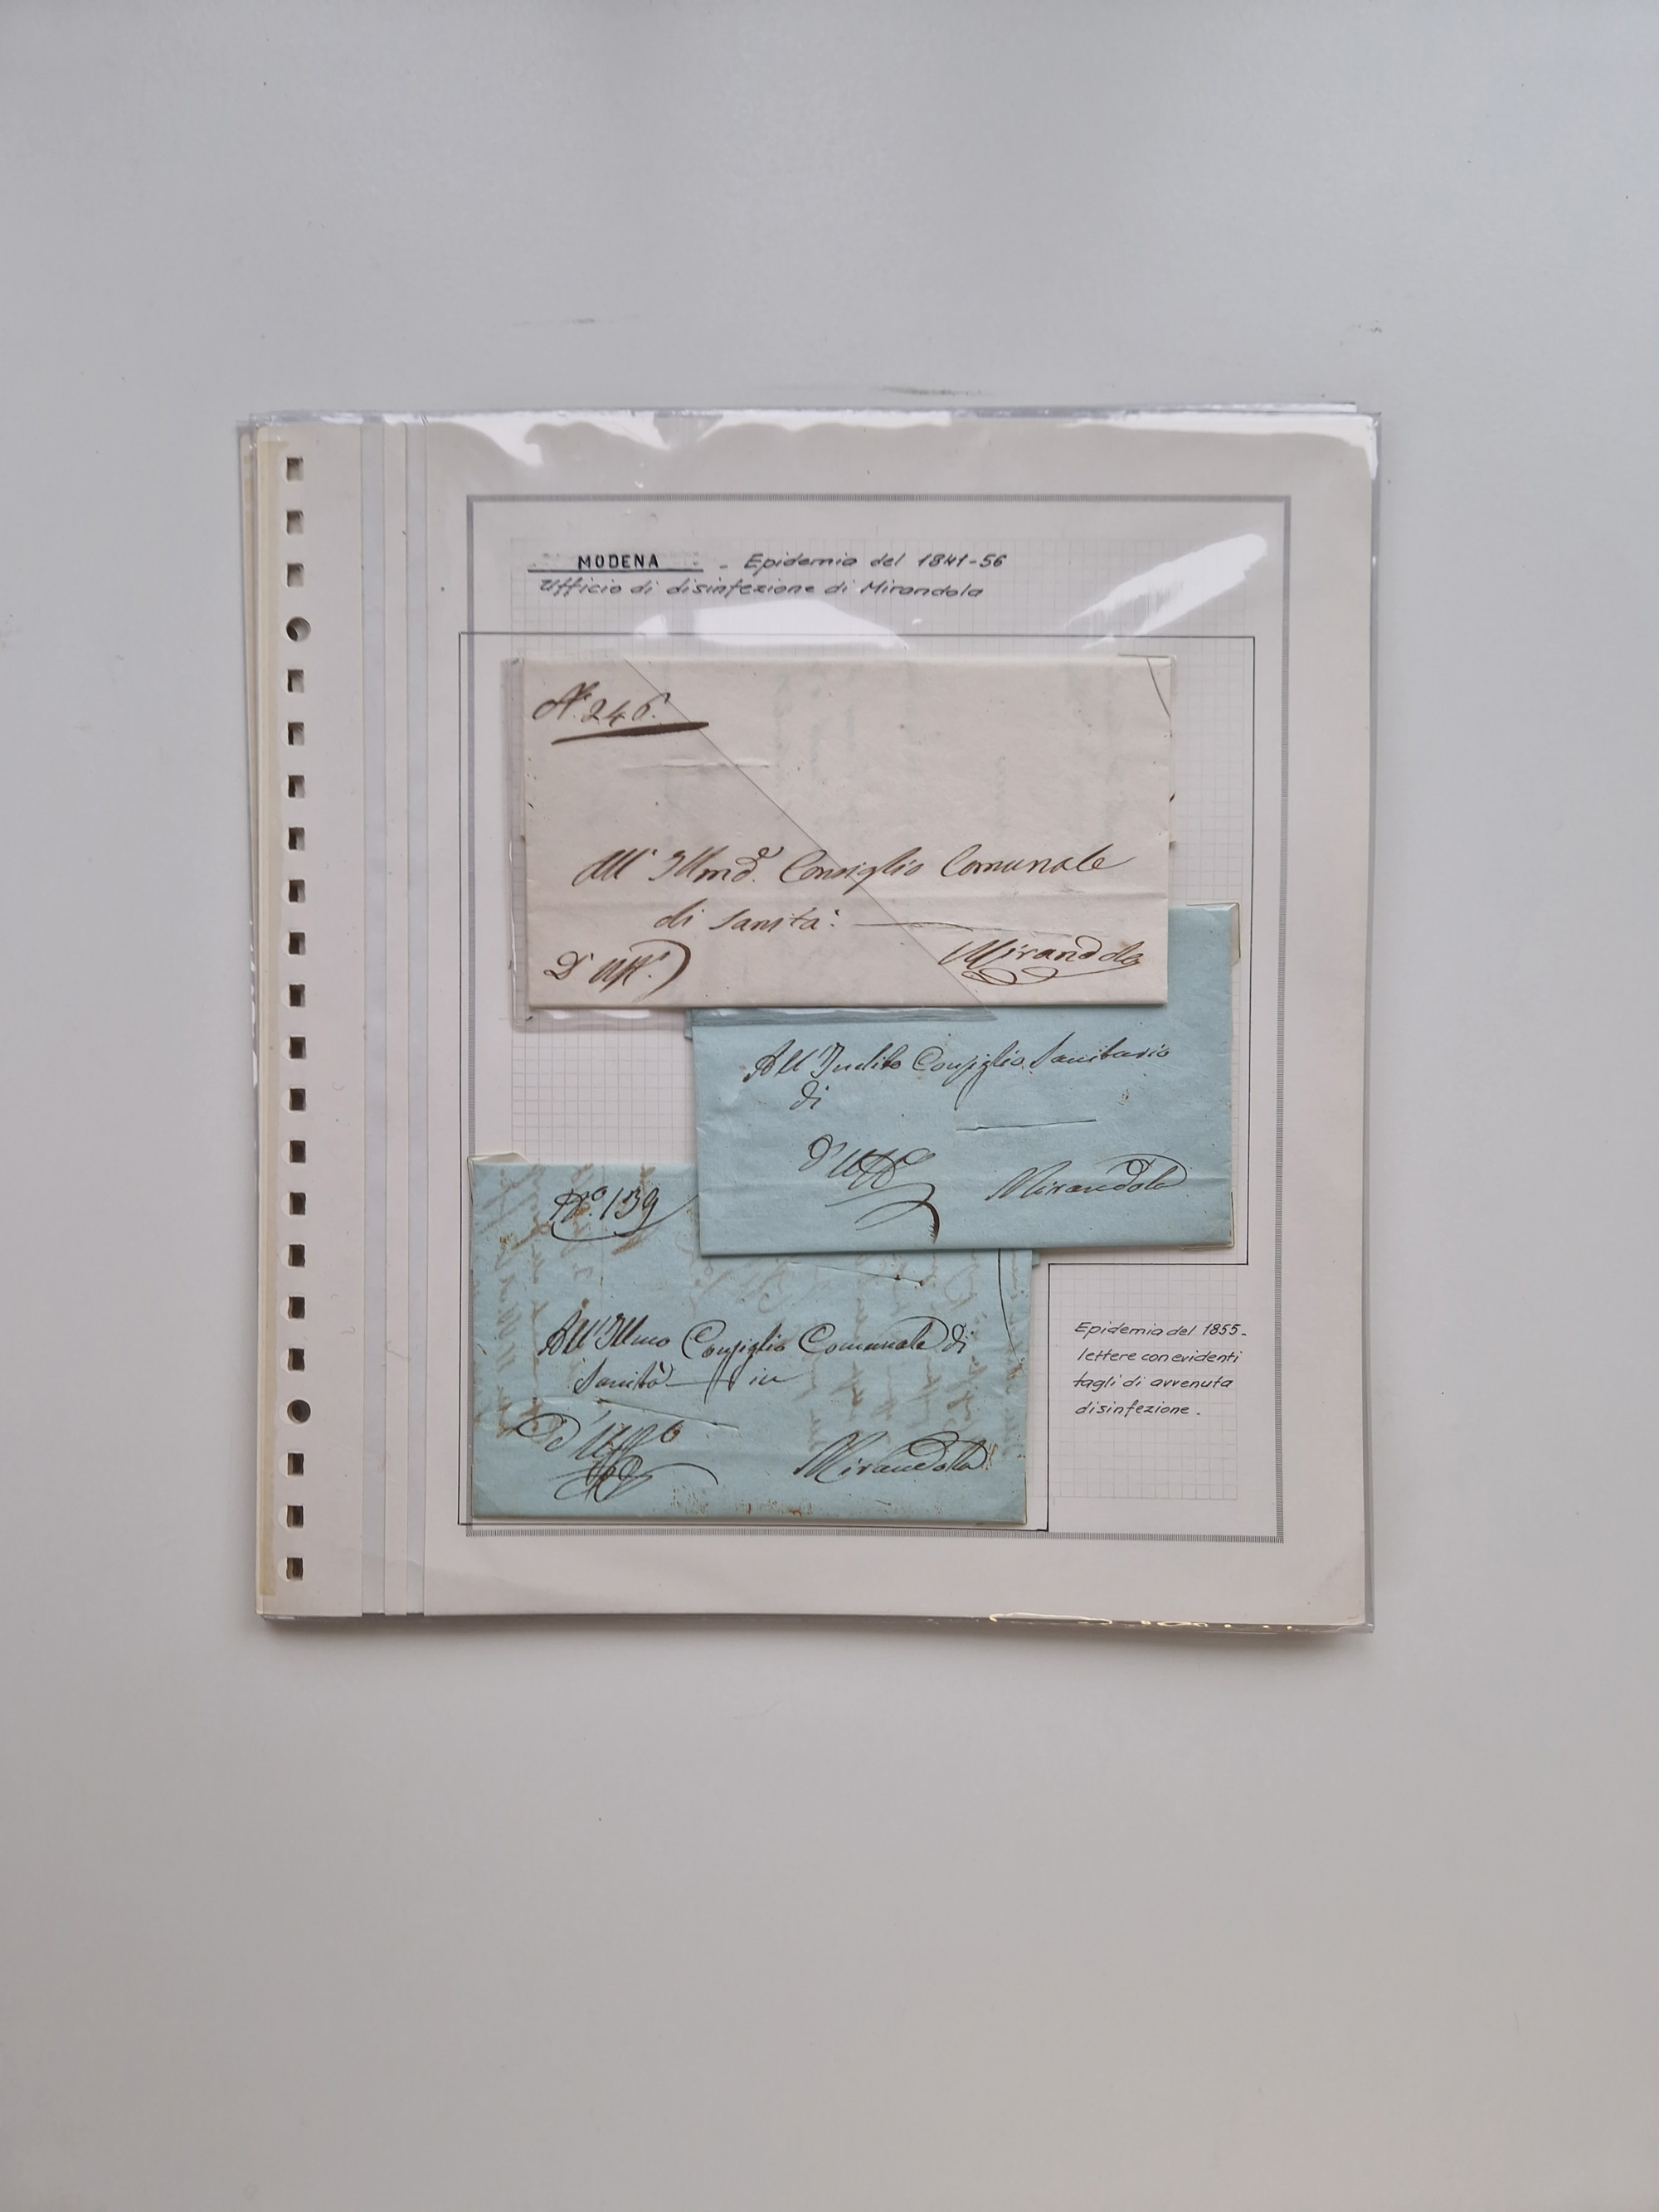 MODENA - Epidemia del 1841-56
Ufficio di disinfezione di Mirandola
N.° 246.
All' Illmo. Consiglio Comunale
di Sanità:
Mirandola
D' Uff.°
All'Inclito Consiglio Sanitario
di
D'Uff°
Mirandola
N.° 139
All'Illmo Consiglio Comunale di
Sanità in
D'Uff°
Mirandola
Epidemia del 1855-
lettere con evidenti
tagli di avvenuta
disinfezione.